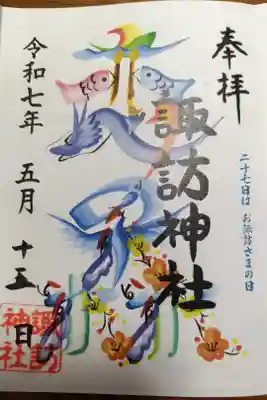 奉拝
二十七日は お諏訪さまの日
諏訪神社
令和七年 五月 十五日
諏訪
神社